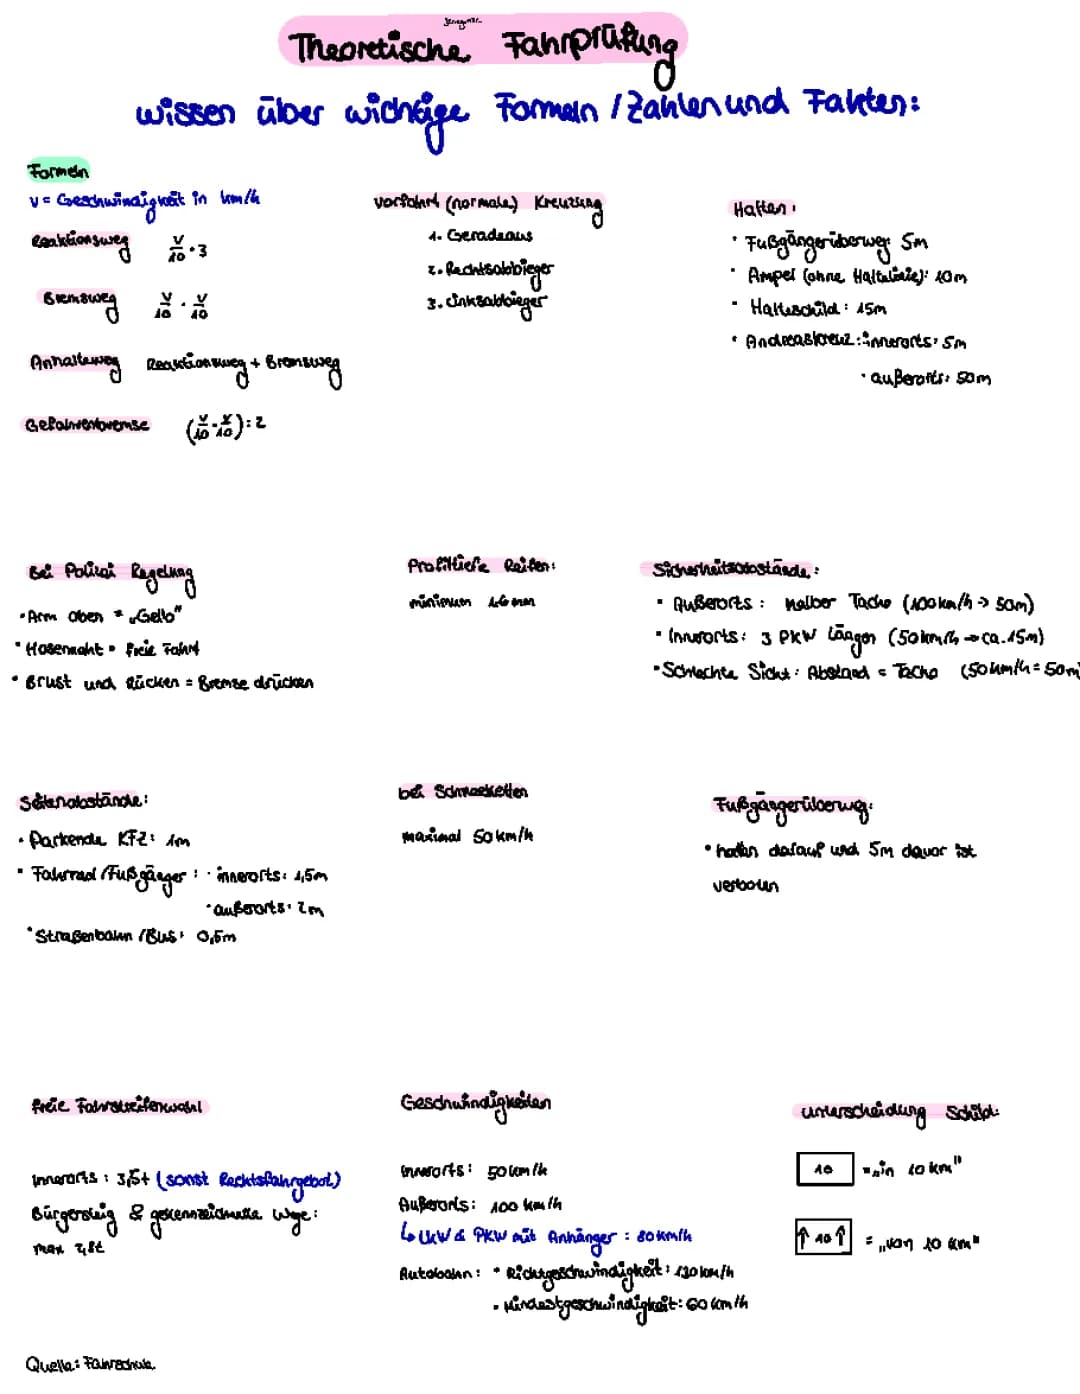 Theoretische Fahrprüfung
wissen über wichtige Formeln / Zahlen und Fakten:
Formeln
v = Geschwindigkeit in km/h
Reaktionsweg v/10 · 3
Bremsweg v/10 · v/10
Anhalteweg Reaktionsweg + Bremsweg
Gefahrenbremse (v/10 · v/10) : 2
vorfahrt (normale) Kreuzung
1. Geradeaus
2. Rechtsabbieger
3. Linksabbieger
Halten:
· Fußgängerüberweg: 5m
· Ampel (ohne Haltelinie): 10m
· Halteschild: 15m
· Andreaskreuz: · innerorts: 5m
· außerorts: 50m
Bei Polizei Regelung
· Arm oben = „Gelb"
· Hosennaht = freie Fahrt
· Brust und Rücken = Bremse drücken
Profiltiefe Reifen:
minimum 1.6 mm
Sicherheitsabstände:
· Außerorts: halber Tacho (100km/h → 50m)
· Innerorts: 3 PKW Längen (50km/h → ca. 15m)
· Schlechte Sicht: Abstand = Tacho (50km/h = 50m
Seitenabstände:
· Parkende KFZ: 1m
· Fahrrad/Fußgänger: · innerorts: 1,5m
· außerorts: 2m
· Straßenbahn/Bus: 0,5m
bei Schneeketten
maximal 50 km/h
Fußgängerüberweg:
· halten darauf und 5m davor ist
verboten
freie Fahrstreifenwahl
Innerorts: 3,5t (sonst Rechtsfahrgebot)
Bürgersteig & gekennzeichnete Wege:
max 2,8t
Geschwindigkeiten
Innerorts: 50km/h
Außerorts: 100 km/h
↳ LKW & PKW mit Anhänger: 80km/h
Autobahn: · Richtgeschwindigkeit: 130km/h
· Mindestgeschwindigkeit: 60 km/h
unterscheidung Schild:
10 = „in 10 km"
↑ 10 ↑ = „von 10 km"
Quelle: Fahrschule